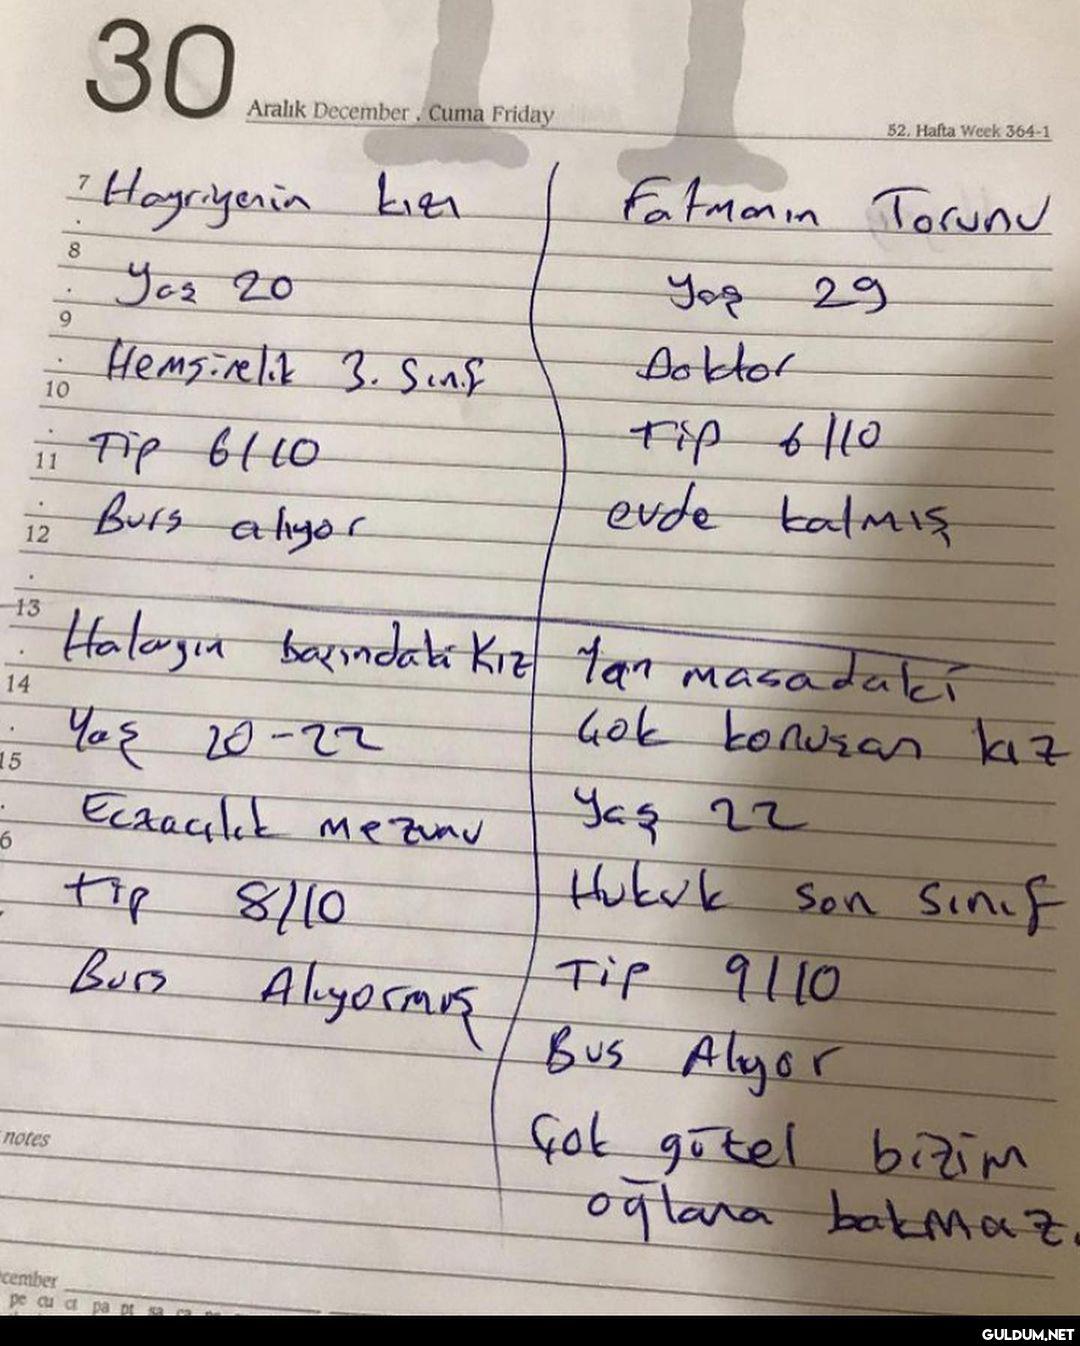 30
Aralık December . Cuma Friday
52. Hafta Week 364-1
7
8
9
10
11
12
13
14
15
6
Hayriyenin kızı
Yaş 20
Hemşirelik 3. Sınıf
Tip 6/10
Burs alıyor
Fatmanın Torunu
Yaş 29
Doktor
Tip 6/10
evde kalmış
Halayın başındaki Kız
Yaş 20-22
Eczacılık mezunu
tip 8/10
Burs Alıyormuş
Yan masadaki
Çok konuşan kız
Yaş 22
Hukuk son sınıf
Tip 9/10
Bus Alıyor
Çok güzel bizim
oğlana bakmaz.
notes
cember
pe cu ct pa pt sa ça
GULDUM.NET